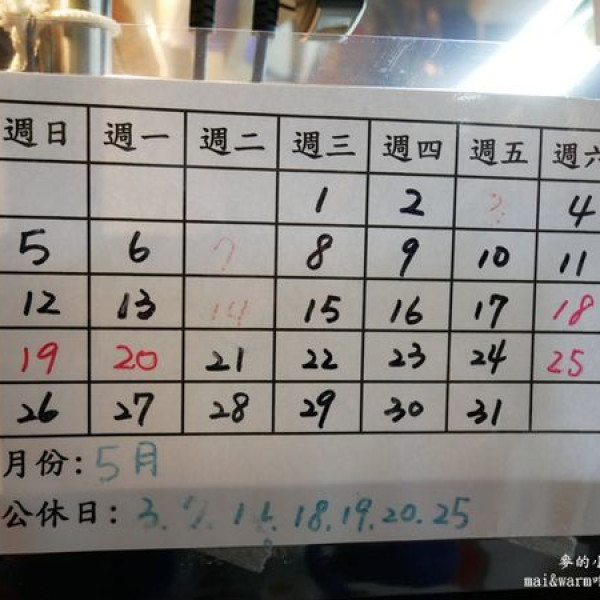 週日 週一 週二 週三 週四 週五 週六
1 2 3 4
5 6 7 8 9 10 11
12 13 14 15 16 17 18
19 20 21 22 23 24 25
26 27 28 29 30 31
月份: 5月
公休日: 3. 7. 14. 18. 19. 20. 25
麥的小
mai&warm